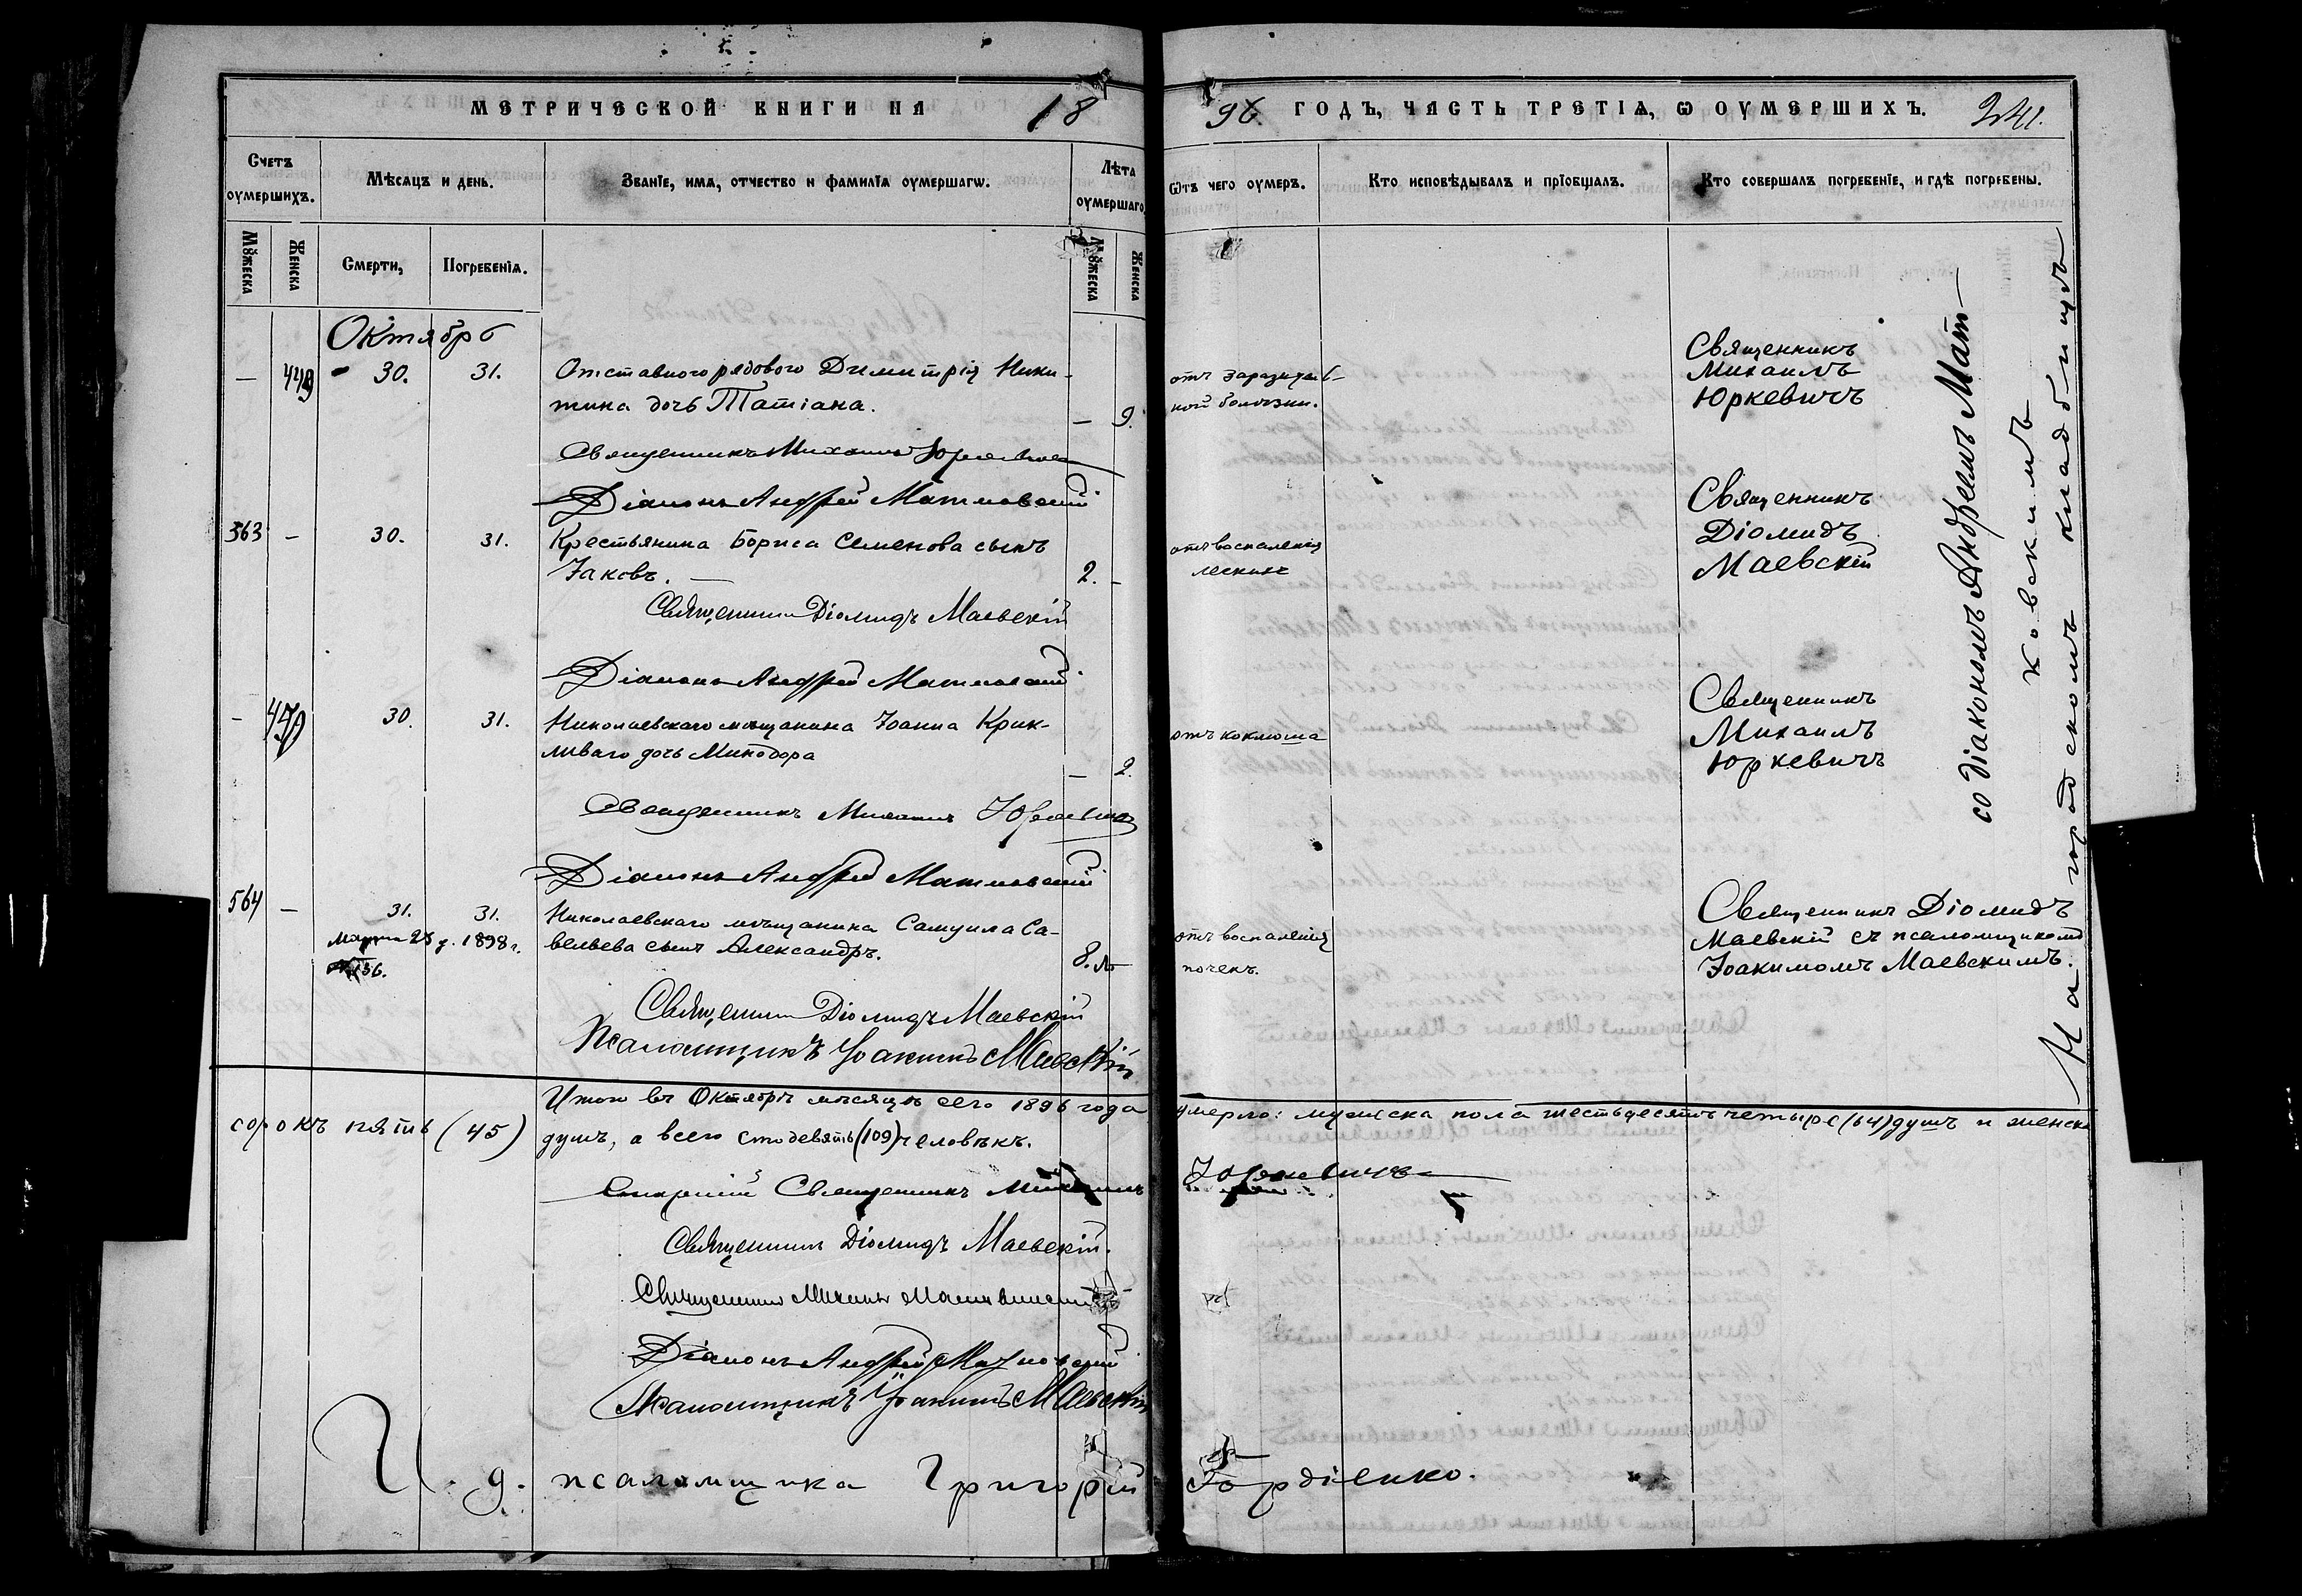 МЕТРИЧЕСКОЙ КНИГИ НА 18
96 ГОДЪ, ЧАСТЬ ТРЕТІѦ, Ѡ ОУМЕРШИХЪ. 241.
Счетъ оумершихъ.
Мѣсѧцъ и день.
Званіе, имѧ, отчество и фамиліѧ оумершагѡ.
Лѣта оумершаго
Ѿтъ чего оумеръ.
Кто исповѣдывалъ и пріобщалъ.
Кто совершалъ погребеніе, и гдѣ погребены.
Мꙋжеска
Женска
Смерти,
Погребеніѧ.
Мꙋжеска
Женска
Октябрь
— 30. 31. Отставного рядового Димитрія Ники-
тина дочь Татіана. — 9.
отъ заразитель-
ной болѣзни.
Священникъ
Михаилъ
Юркевичъ
Священникъ Михаилъ Юркевичъ
Діаконъ Андрей Матковскій
363 — 30. 31. Крестьянина Бориса Семенова сынъ
Іаковъ. — 2. —
отъ воспаленія
легкихъ
Священникъ
Діомидъ
Маевскій
Священникъ Діомидъ Маевскій
Діаконъ Андрей Матковскій
— 30. 31. Николаевскаго мѣщанина Іоанна Крик-
ливаго дочь Минодора — 2.
отъ коклюша
Священникъ
Михаилъ
Юркевичъ
Священникъ Михаилъ Юркевичъ
Діаконъ Андрей Матковскій
564 — 31. 31. Николаевскаго мѣщанина Самуила Са-
вельева сынъ Александръ. 8.
Марта 28 д. 1898 г.
№ 136.
отъ воспаленія
почекъ.
Священникъ Діомидъ
Маевскій съ псаломщикомъ
Іоакимомъ Маевскимъ.
Священникъ Діомидъ Маевскій
Псаломщикъ Іоакимъ Маевскій
со діакономъ Андреемъ Мат-
ковскимъ
На городскомъ кладбищѣ
Итого въ Октябрѣ мѣсяцѣ сего 1896 года умерло: мужеска пола шестьдесятъ четыре (64) душъ и женска
сорокъ пять (45) душъ, а всего сто девять (109) человѣкъ.
Старшій Священникъ Михаилъ Юркевичъ
Священникъ Діомидъ Маевскій.
Священникъ Михаилъ
Діаконъ Андрей Матковскій
Псаломщикъ Іоакимъ Маевскій
И. д. псаломщика Григорій Гордіенко.